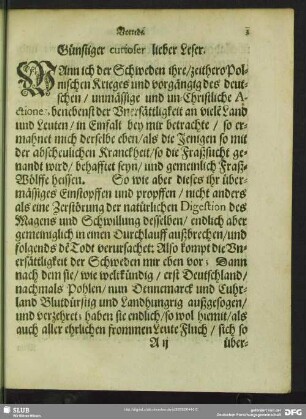 Vorrede.
Günstiger curioser lieber Leser.
WAnn ich der Schweden ihre/zeithero Pol-
nischen Krieges und vorgängig des deut-
schen / unmässige und un-Christliche A-
ctiones, benebenst der Vnersättligkeit an viele Land
und Leuten / in Einfalt bey mir betrachte / so er-
mahnet mich derselbe eben /als die Jenigen so mit
der abscheulichen Kranckheit/ so die Fraßsucht ge-
nandt wird/ behafftet seyn/ und gemeinlich Fraß-
Wölffe heissen. So wie aber dieses ihr über-
mässiges Einstopffen und propffen / nicht anders
als eine Zerstörung der natürlichen Digestion des
Magens und Schwillung desselben/ endlich aber
gemeiniglich in einen Durchlauff außbrechen/und
folgends dē Todt verursachet: Also kompt die Vn-
ersättligkeit der Schweden mir eben vor; Dann
nach dem sie/ wie weltkündig/ erst Deutschland/
nachmals Pohlen/ nun Dennemarck und Cuhr-
land Blutdürstig und Landhungrig außgesogen/
und verzehret; haben sie endlich/so wol hiemit/als
auch aller ehrlichen frommen Leute Fluch/ sich so
A ij über-
SLUB
DFG